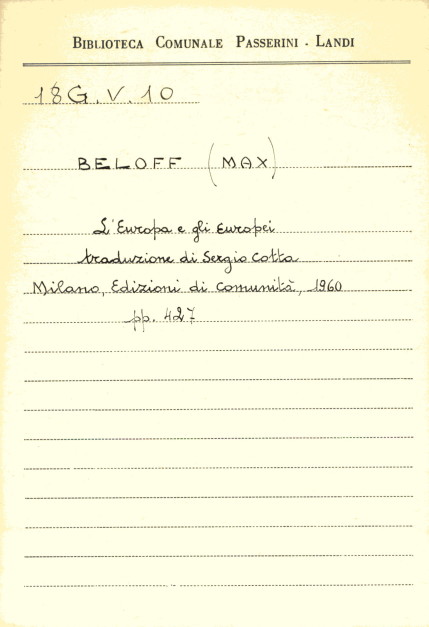 BIBLIOTECA COMUNALE PASSERINI - LANDI
18G.V.10
BELOFF (MAX)
L'Europa e gli Europei
traduzione di Sergio Cotta
Milano, Edizioni di Comunità, 1960
pp. 427